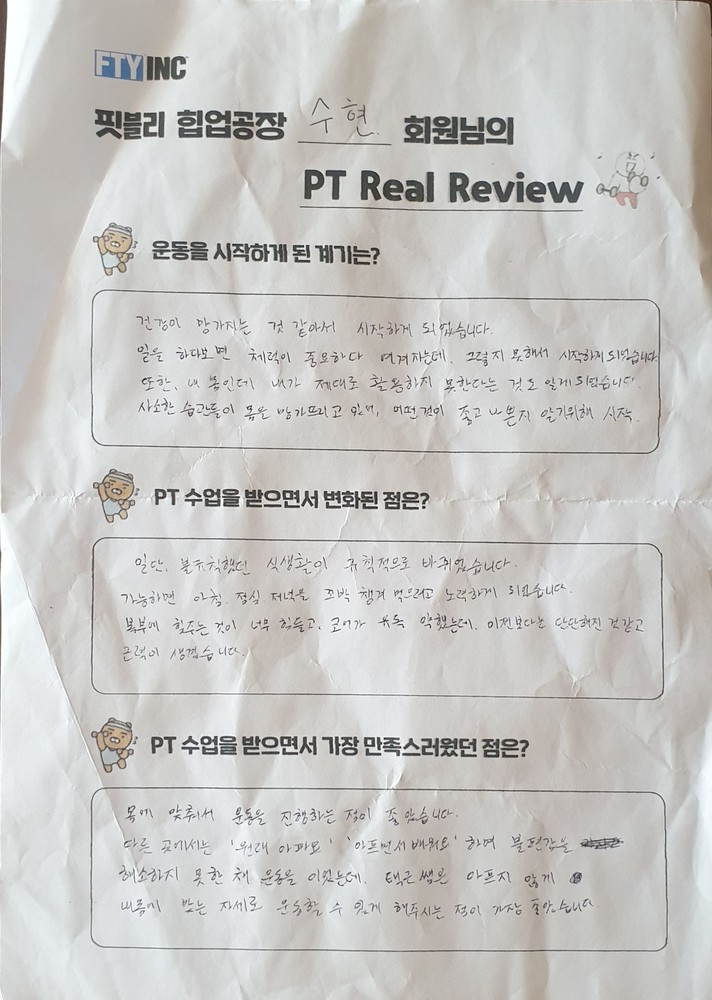 FTY INC
핏블리 힙업공장 수현 회원님의
PT Real Review
운동을 시작하게 된 계기는?
건강이 망가지는 것 같아서 시작하게 되었습니다.
일을 하다보면 체력이 중요하다 여겨지는데, 그렇지 못해서 시작하게 되었습니다.
또한, 내 몸인데 내가 제대로 활용하지 못한다는 것도 알게 되었습니다.
사소한 습관들이 몸을 망가뜨리고 있어, 어떤것이 좋고 나쁜지 알기위해 시작.
PT 수업을 받으면서 변화된 점은?
일단, 불규칙했던 식생활이 규칙적으로 바뀌었습니다.
가능하면 아침, 점심 저녁을 꼬박 챙겨 먹으려고 노력하게 되었습니다.
복부에 힘주는 것이 너무 힘들고, 코어가 유독 약했는데, 이전보다는 단단해진 것 같고
근력이 생겼습니다.
PT 수업을 받으면서 가장 만족스러웠던 점은?
몸에 맞춰서 운동을 진행하는 점이 좋았습니다.
다른 곳에서는 '원래 아파요' '아프면서 배워요' 하며 불편감을
해소하지 못한 채 운동을 이었는데, 택근쌤은 아프지 않게
내몸에 맞는 자세로 운동할 수 있게 해주시는 점이 가장 좋았습니다.